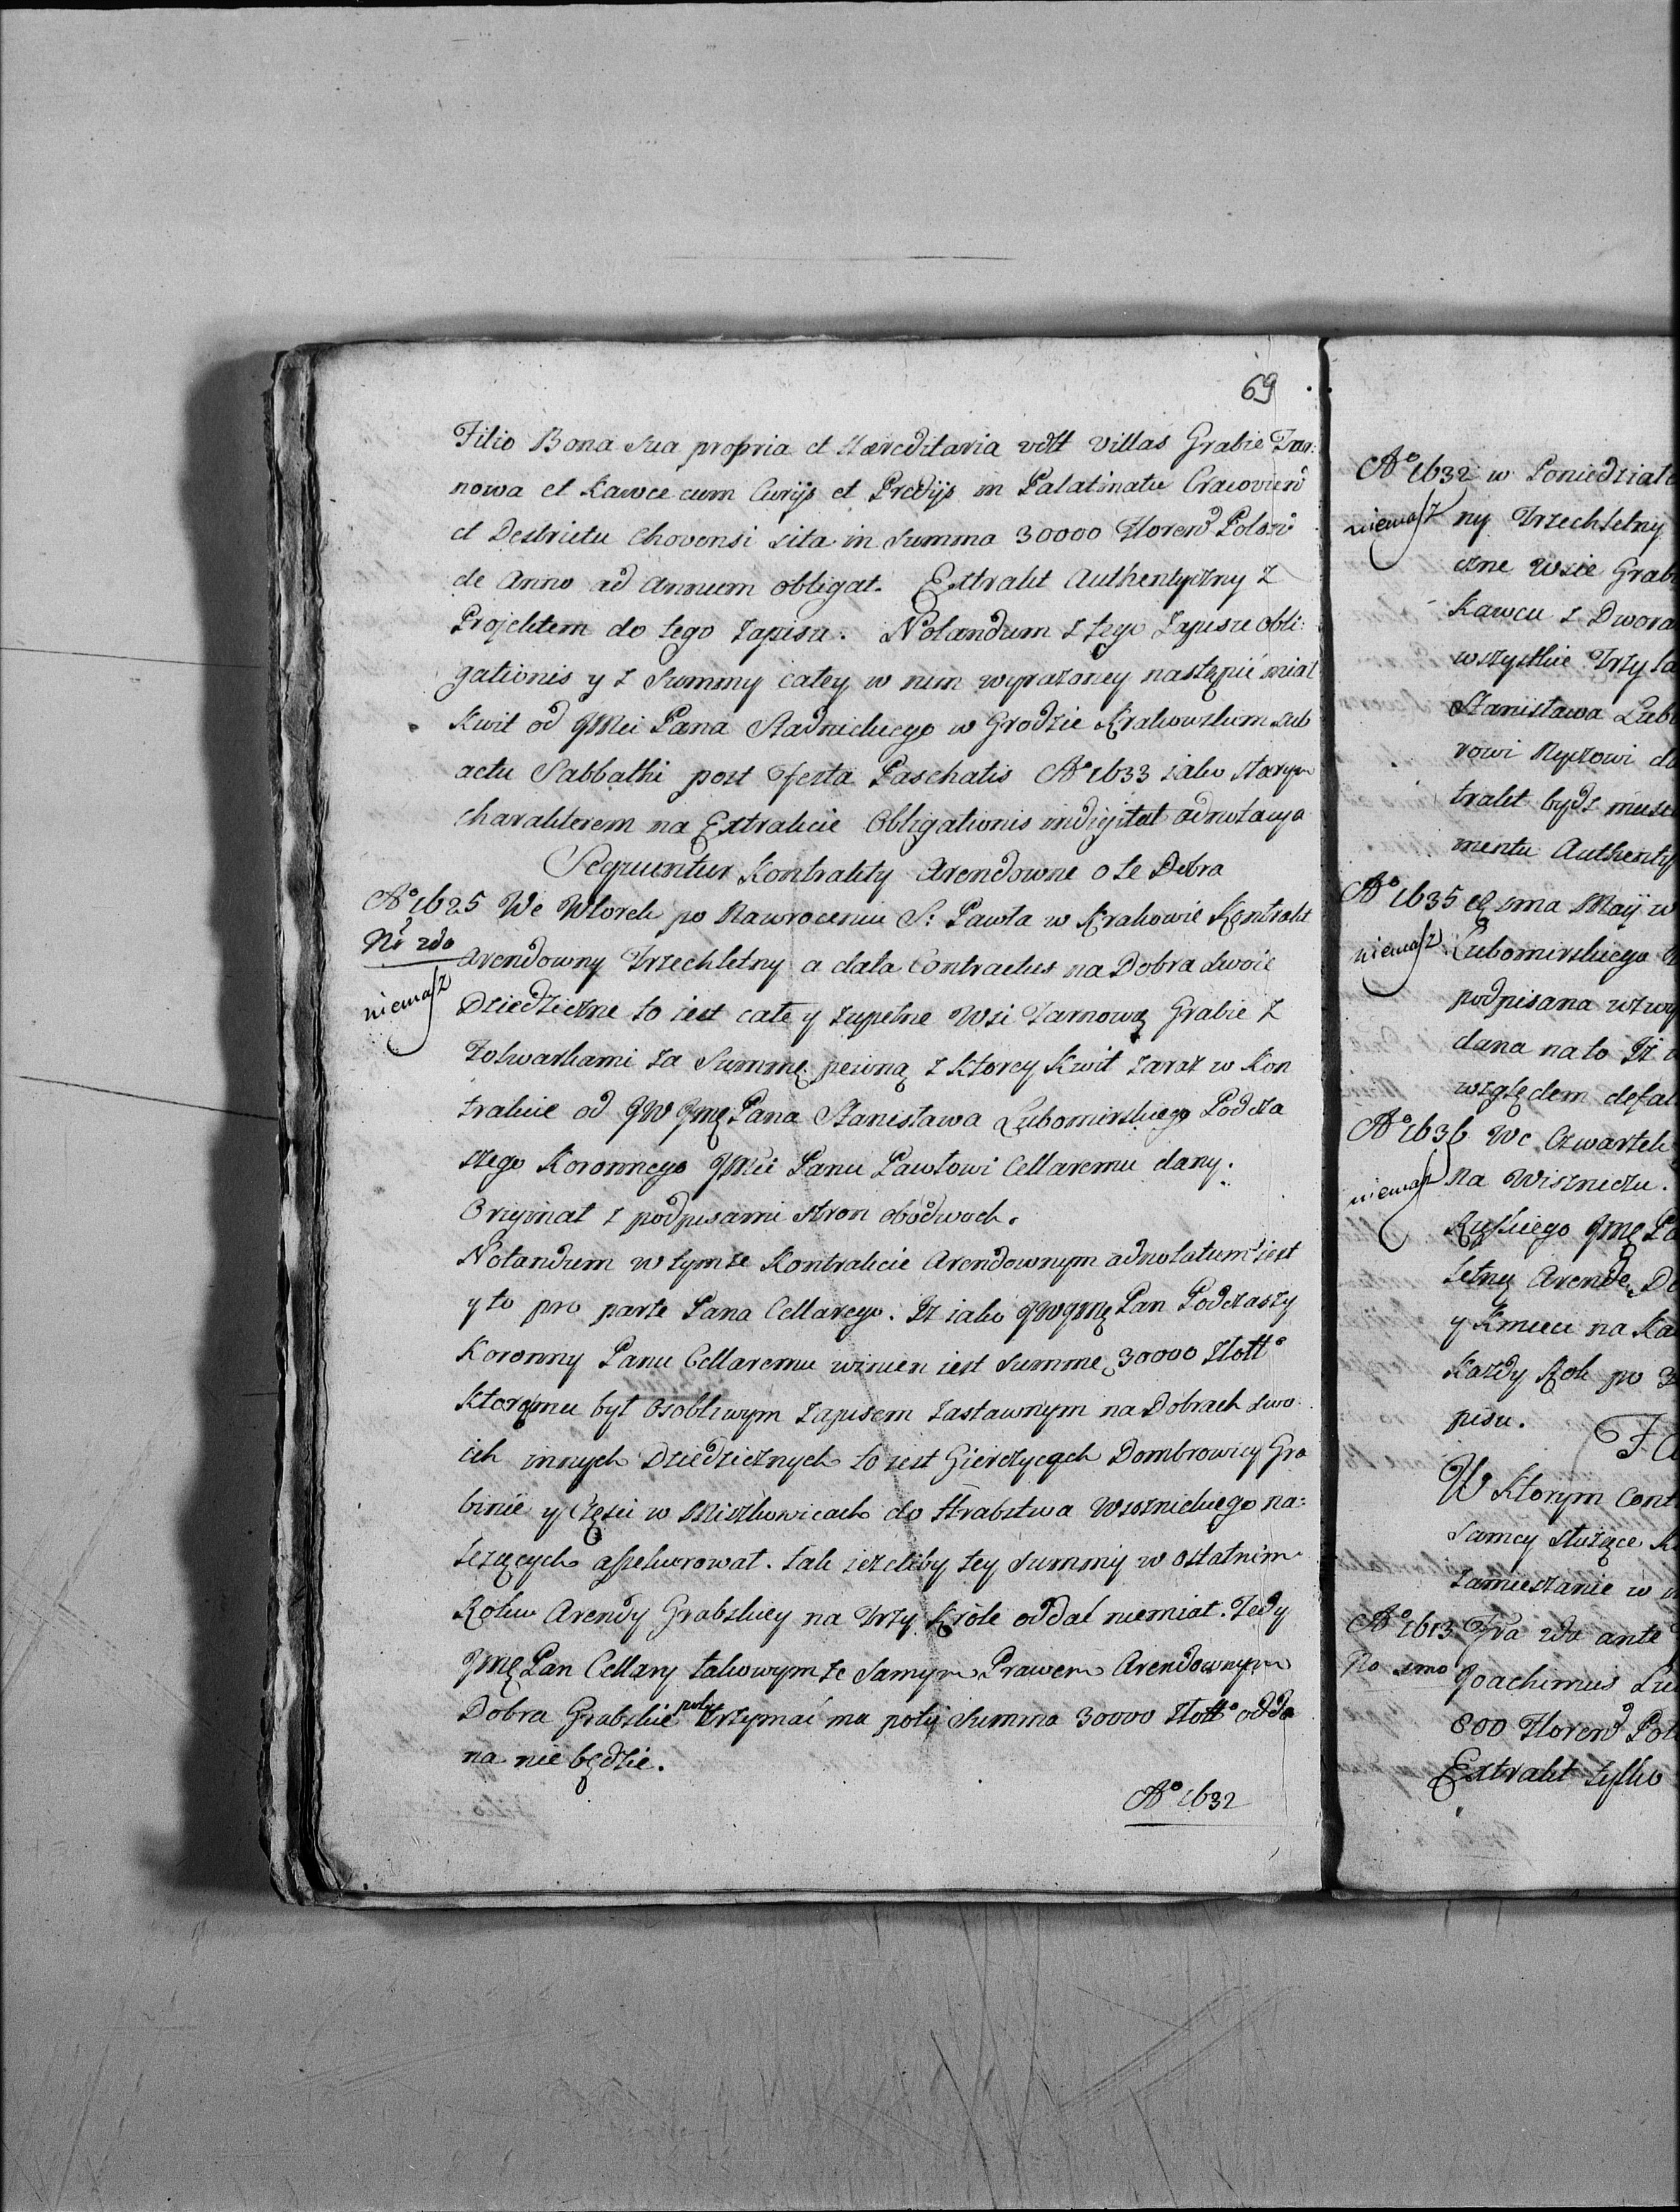 69
Filio Bona sua propria et Haereditaria vdtt villas Grabie Tar:
nowa et Kawce cum Curijs et Predijs in Palatinatu Cracovien
et Destrictu Chovensi sita in Summa 30000 Floren Polon
de Anno ad Annum obligat. Extrakt Authentyczny z
Projektem do tego zapisu. Notandum z tego Zapisu obli:
gationis y z Summy całey w nim wyrażoney nastąpić miał
Kwit od JMci Pana Stadnickiego w Grodzie Krakowskim sub
actu Sabbathi post festa Paschatis Aº 1633 iako starym
charakterem na Extrakcie Obligationis indigitat adnotacya
Sequuntur Kontrakty Arendowne o te Dobra
Aº 1625 We Wtorek po Nawroceniu S: Pawła w Krakowie Kontrakt
Nº 2do
niemasz
Arendowny Trzechletny a data Contractus na Dobra dwoie
Dziedziczne to iest całe y zupełne Wsi Tarnowę Grabie z
Folwarkami za Summę pewną z ktorey Kwit zaraz w Kon
trakcie od JW Jmę Pana Stanisława Lubomirskiego Podcza
szego Koronnego JMci Panu Pawłowi Cellaremu dany.
Originał z podpisami stron obodwoch.
Notandum w tymże Kontrakcie Arendownym adnotatum iest
y to pro parte Pana Cellarego. Iż iako JWJmę Pan Podczaszy
Koronny Panu Cellaremu winien iest Summę 30000 Złottº
ktoremu był osobliwym zapisem zastawnym na Dobrach swo
ich innych Dziedzicznych to iest Gierczycach Dombrowicy Gra
binie y Częsci w Miszkowicach do Hrabstwa Wisznickiego na:
leżących assekurował. tak ieżeliby tey Summy w ostatnim
Roku Arendy Grabskiey na Trzy Krole oddać niemiał. Tedy
Jmę Pan Cellary takowym że samym Prawem Arendownym
Dobra Grabskie poty trzymać ma poty Summa 30000 Złottº odda
na nie będzie.
Aº 1632
Aº 1632 w Poniedział
niemasz
ny Trzechletny
czne Wsie Grab
Kawcu z Dwora
wszystkie Trzy
Stanisława Lub
rowi
trakt bydź mus
mentu Authenty
Aº 1635 ma Maij w
niemasz
Lubomirskiego
podpisana
dana na to Iż
względem defal
Aº 1636 We Czwartek
niemasz
na Wiszniczu.
Ruskiego Jmę Pa
letnę Arendę Do
y Kmieci na Ka
Każdy Rok po 3
pisu.
W ktorym Cont
Samey służące
zamieszanie w
Aº 1613 Fra 2da ante
No 1mo
Joachimus Lu
800 Floren Pol
Extrakt tylko